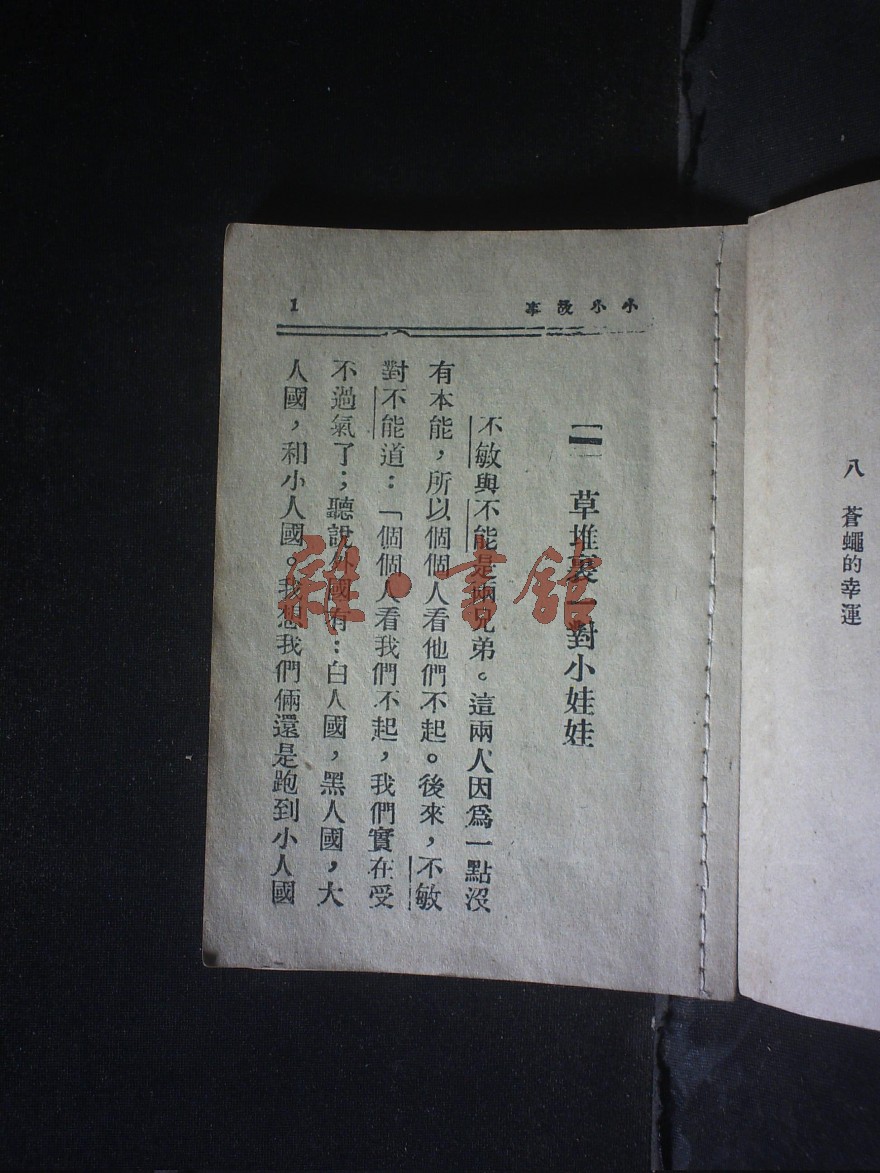 小小故事
1
【一】 草堆裏一對小娃娃
不敏與不能是兩兄弟。這兩人因爲一點沒
有本能，所以個個人看他們不起。後來，不敏
對不能道：「個個人看我們不起，我們實在受
不過氣了；聽說外國有：白人國，黑人國，大
人國，和小人國。我想我們倆還是跑到小人國
八 蒼蠅的幸運
雜·書館